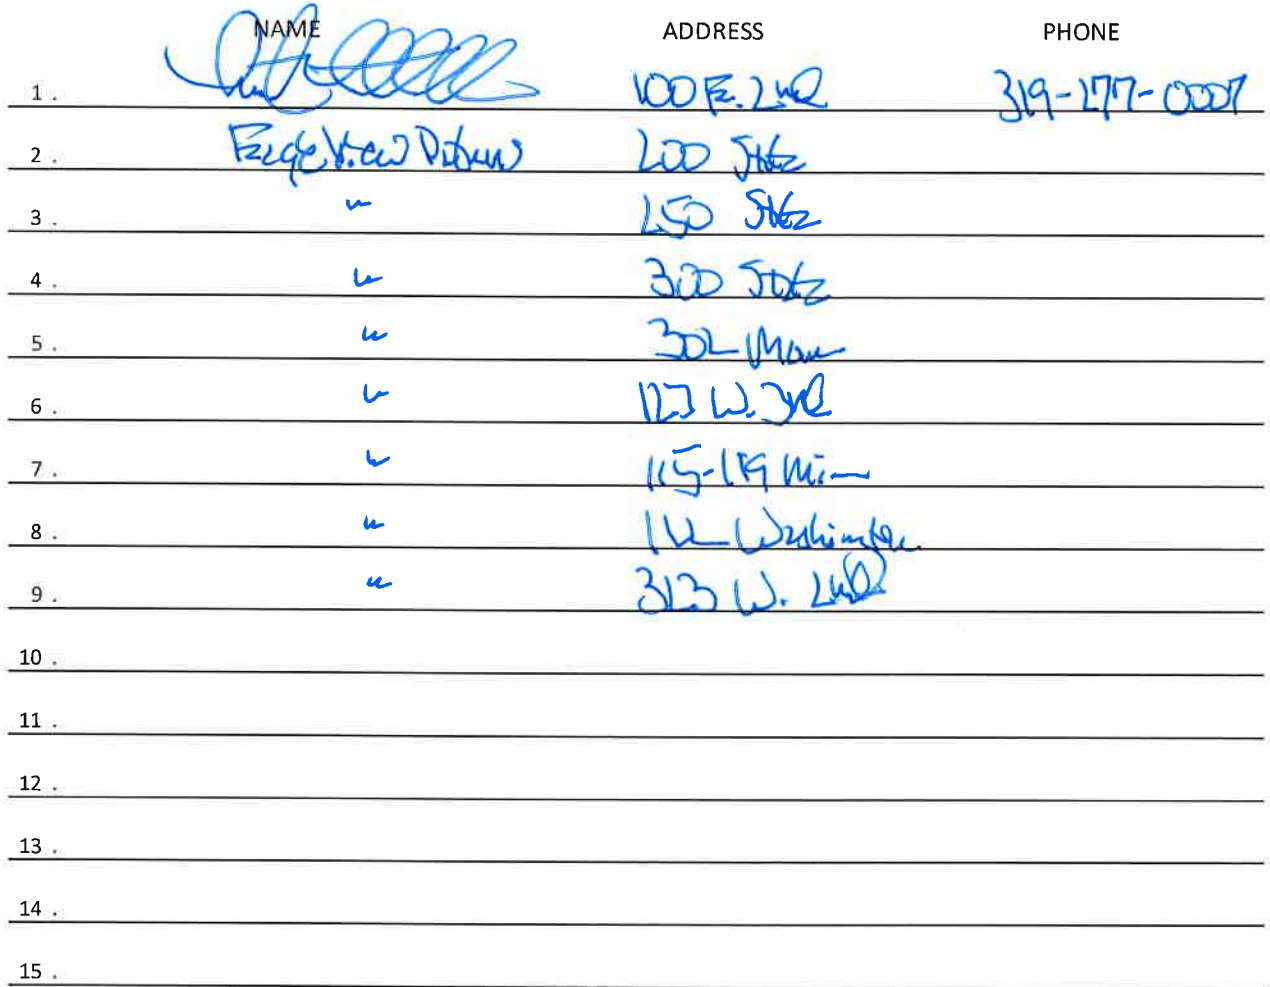 NAME ADDRESS PHONE
1. 100 E. 2nd 319-277-0007
2. Eagle View 200 State
3. " 250 State
4. " 300 State
5. " 302 Main
6. " 123 W. 3rd
7. " 115-119 Main
8. " 112 Washington
9. " 323 W. 2nd
10.
11.
12.
13.
14.
15.